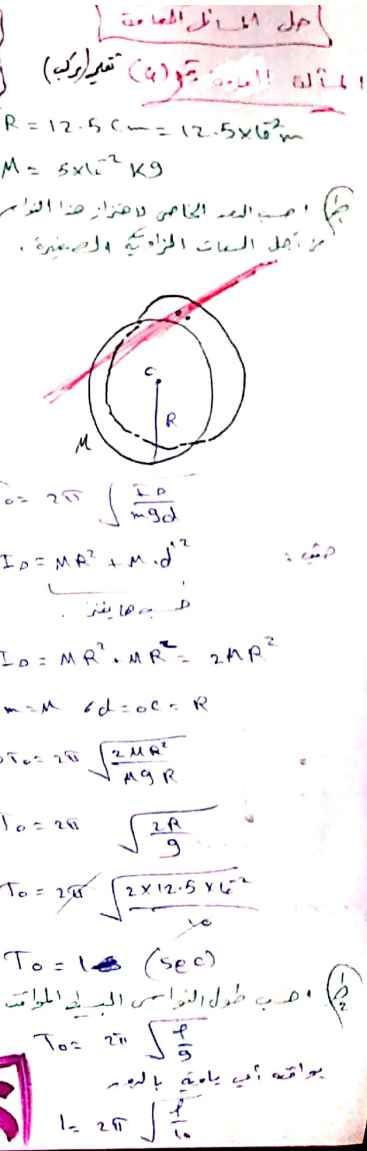 حل المسائل العامة
المسألة العامة رقم (4) تغير (مركب)
R = 12.5 Cm = 12.5×10⁻² m
M = 5×10⁻² Kg
ط1 احسب الدور الخاص لاهتزاز هذا النواس
من أجل السعات الزاوية الصغيرة .
C
R
M
T₀ = 2π √(I_D / mgd)
حيث :
I_D = MR² + M.d'²
حسب هايغنز .
I_D = MR² + MR² = 2MR²
m = M ، d = oc = R
T₀ = 2π √(2MR² / MgR)
T₀ = 2π √(2R / g)
T₀ = 2π √(2×12.5×10⁻² / 10)
T₀ = 1 (sec)
ط2 احسب طول النواس البسيط المواقت
T₀ = 2π √(ℓ / g)
يواقته أي يساويه بالدور
1 = 2π √(ℓ / 10)